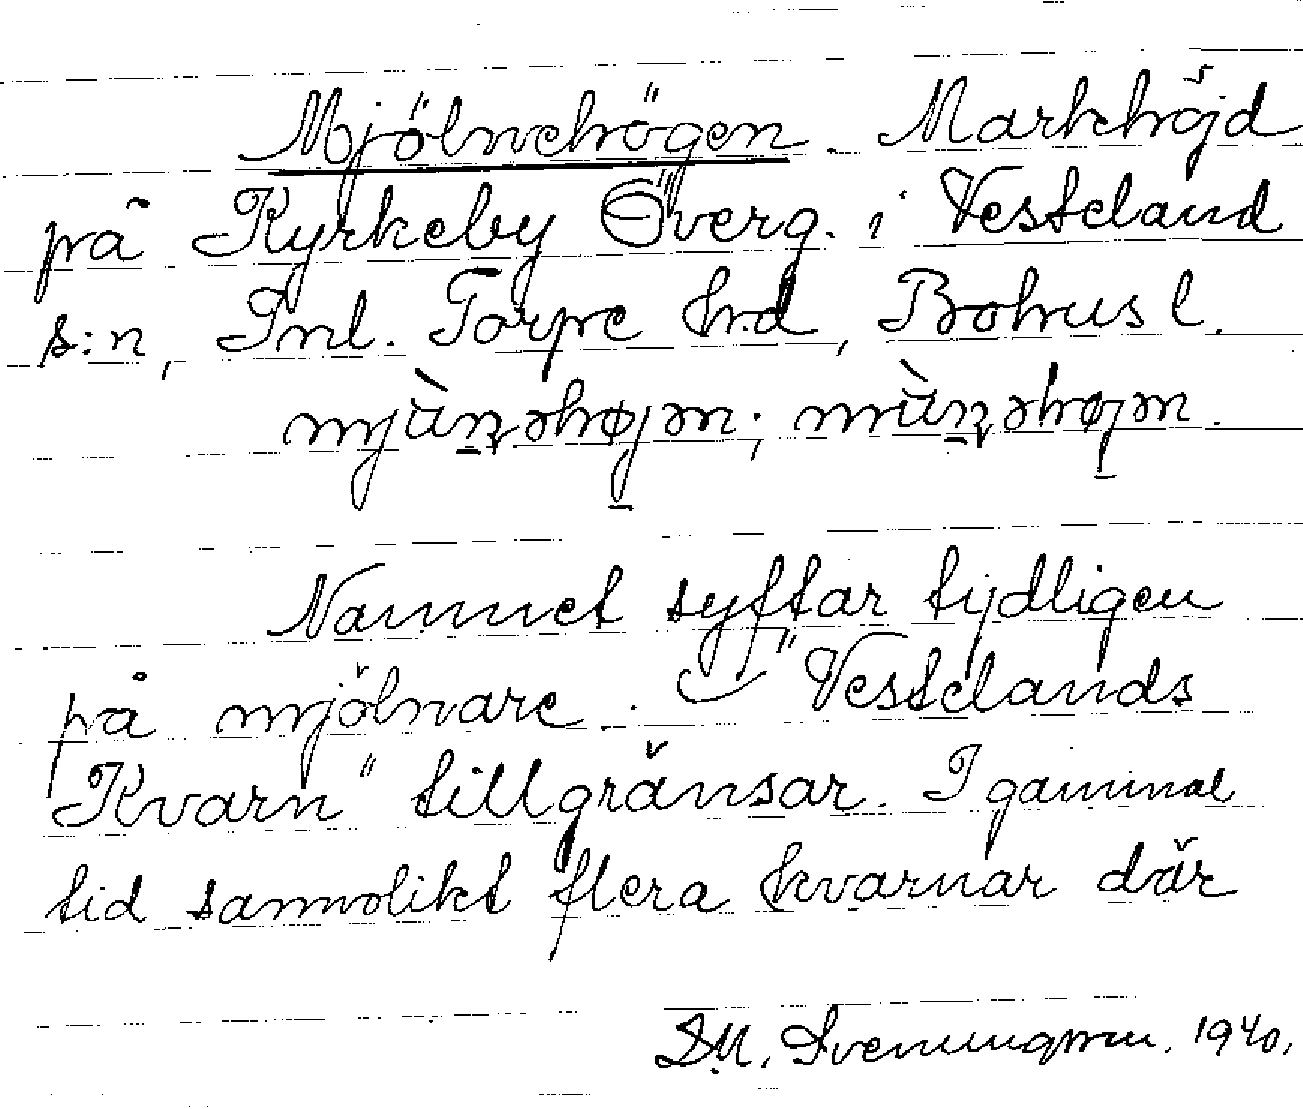 Mjölnehögen. Markhöjd
på Kyrkeby Överg. i Vesteland
s:n, Inl. Torpe hd, Bohus l.
Namnet syftar tydligen
på mjölnare. "Vestelands
Kvarn" tillgränsar. I gammal
tid sannolikt flera kvarnar där
D.M. Svenungsson. 1940.